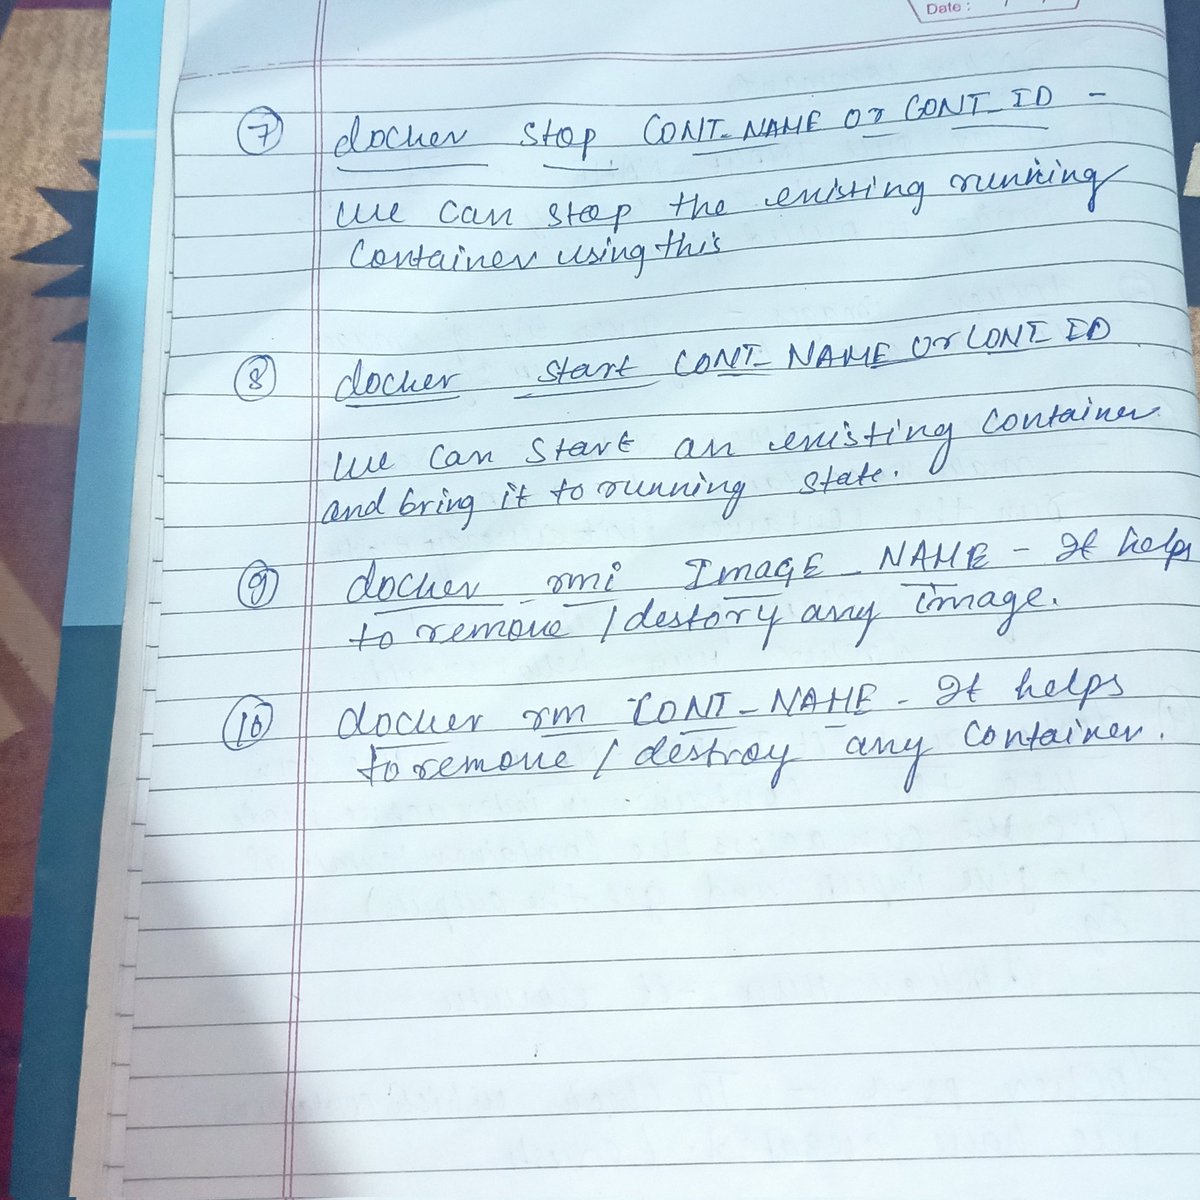 Date : / /
7 docker stop CONT_NAME or CONT_ID -
we can stop the existing running
container using this
8 docker start CONT_NAME or CONT_ID
we can start an existing container
and bring it to running state.
9 docker rmi IMAGE_NAME - It helps
to remove / destory any image.
10 docker rm CONT_NAME - It helps
to remove / destroy any container.